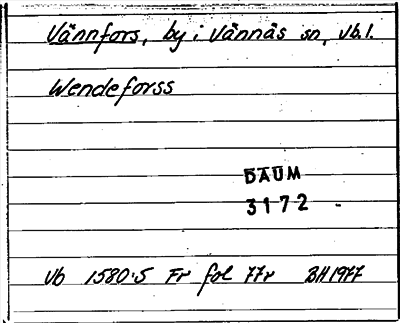 Vännfors, by i Vännäs sn, Vb.l.
Wendeforss
DAUM
3172 -
Vb 1580:5 Fr fol 77r BH 1977